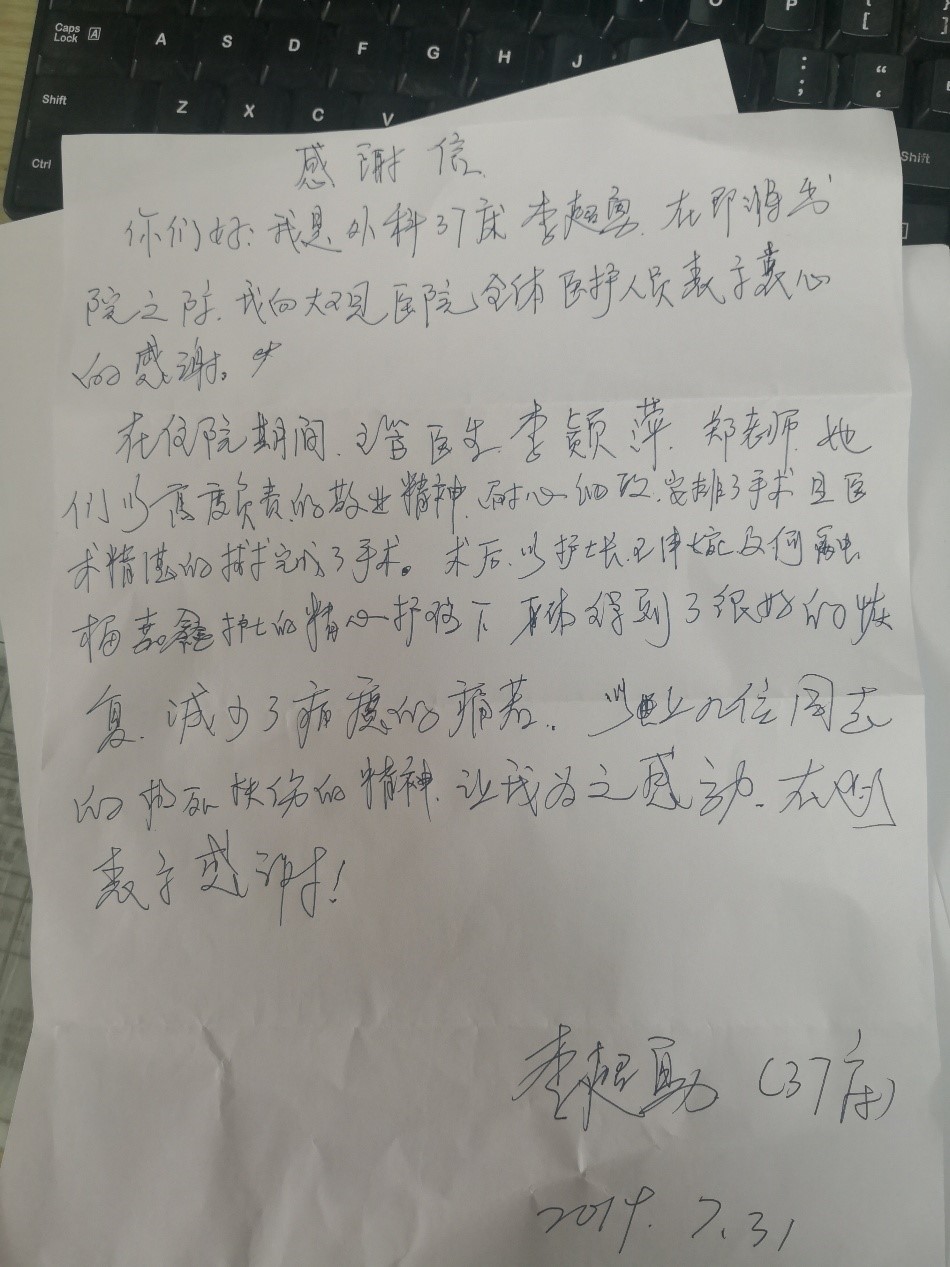 Caps Lock A A S D F G H J O P { [
Shift Z X C V : ; “ ‘
Ctrl Shift
感谢信
你们好: 我是外科37床李超勇. 在即将出
院之际. 我向大观医院全体医护人员表示衷心
的感谢。
在住院期间. 主管医生李颖萍. 郑老师. 她
们以高度负责的敬业精神. 耐心细致. 安排了手术且医
术精湛的技术完成了手术。术后. 以护士长. 王津婷及何
护士的精心护理下 身体得到了很好的恢
复. 减少了病痛的痛苦. 以上九位同志
的救死扶伤的精神. 让我为之感动. 在此
表示感谢!
李超勇 (37床)
2019. 7. 31